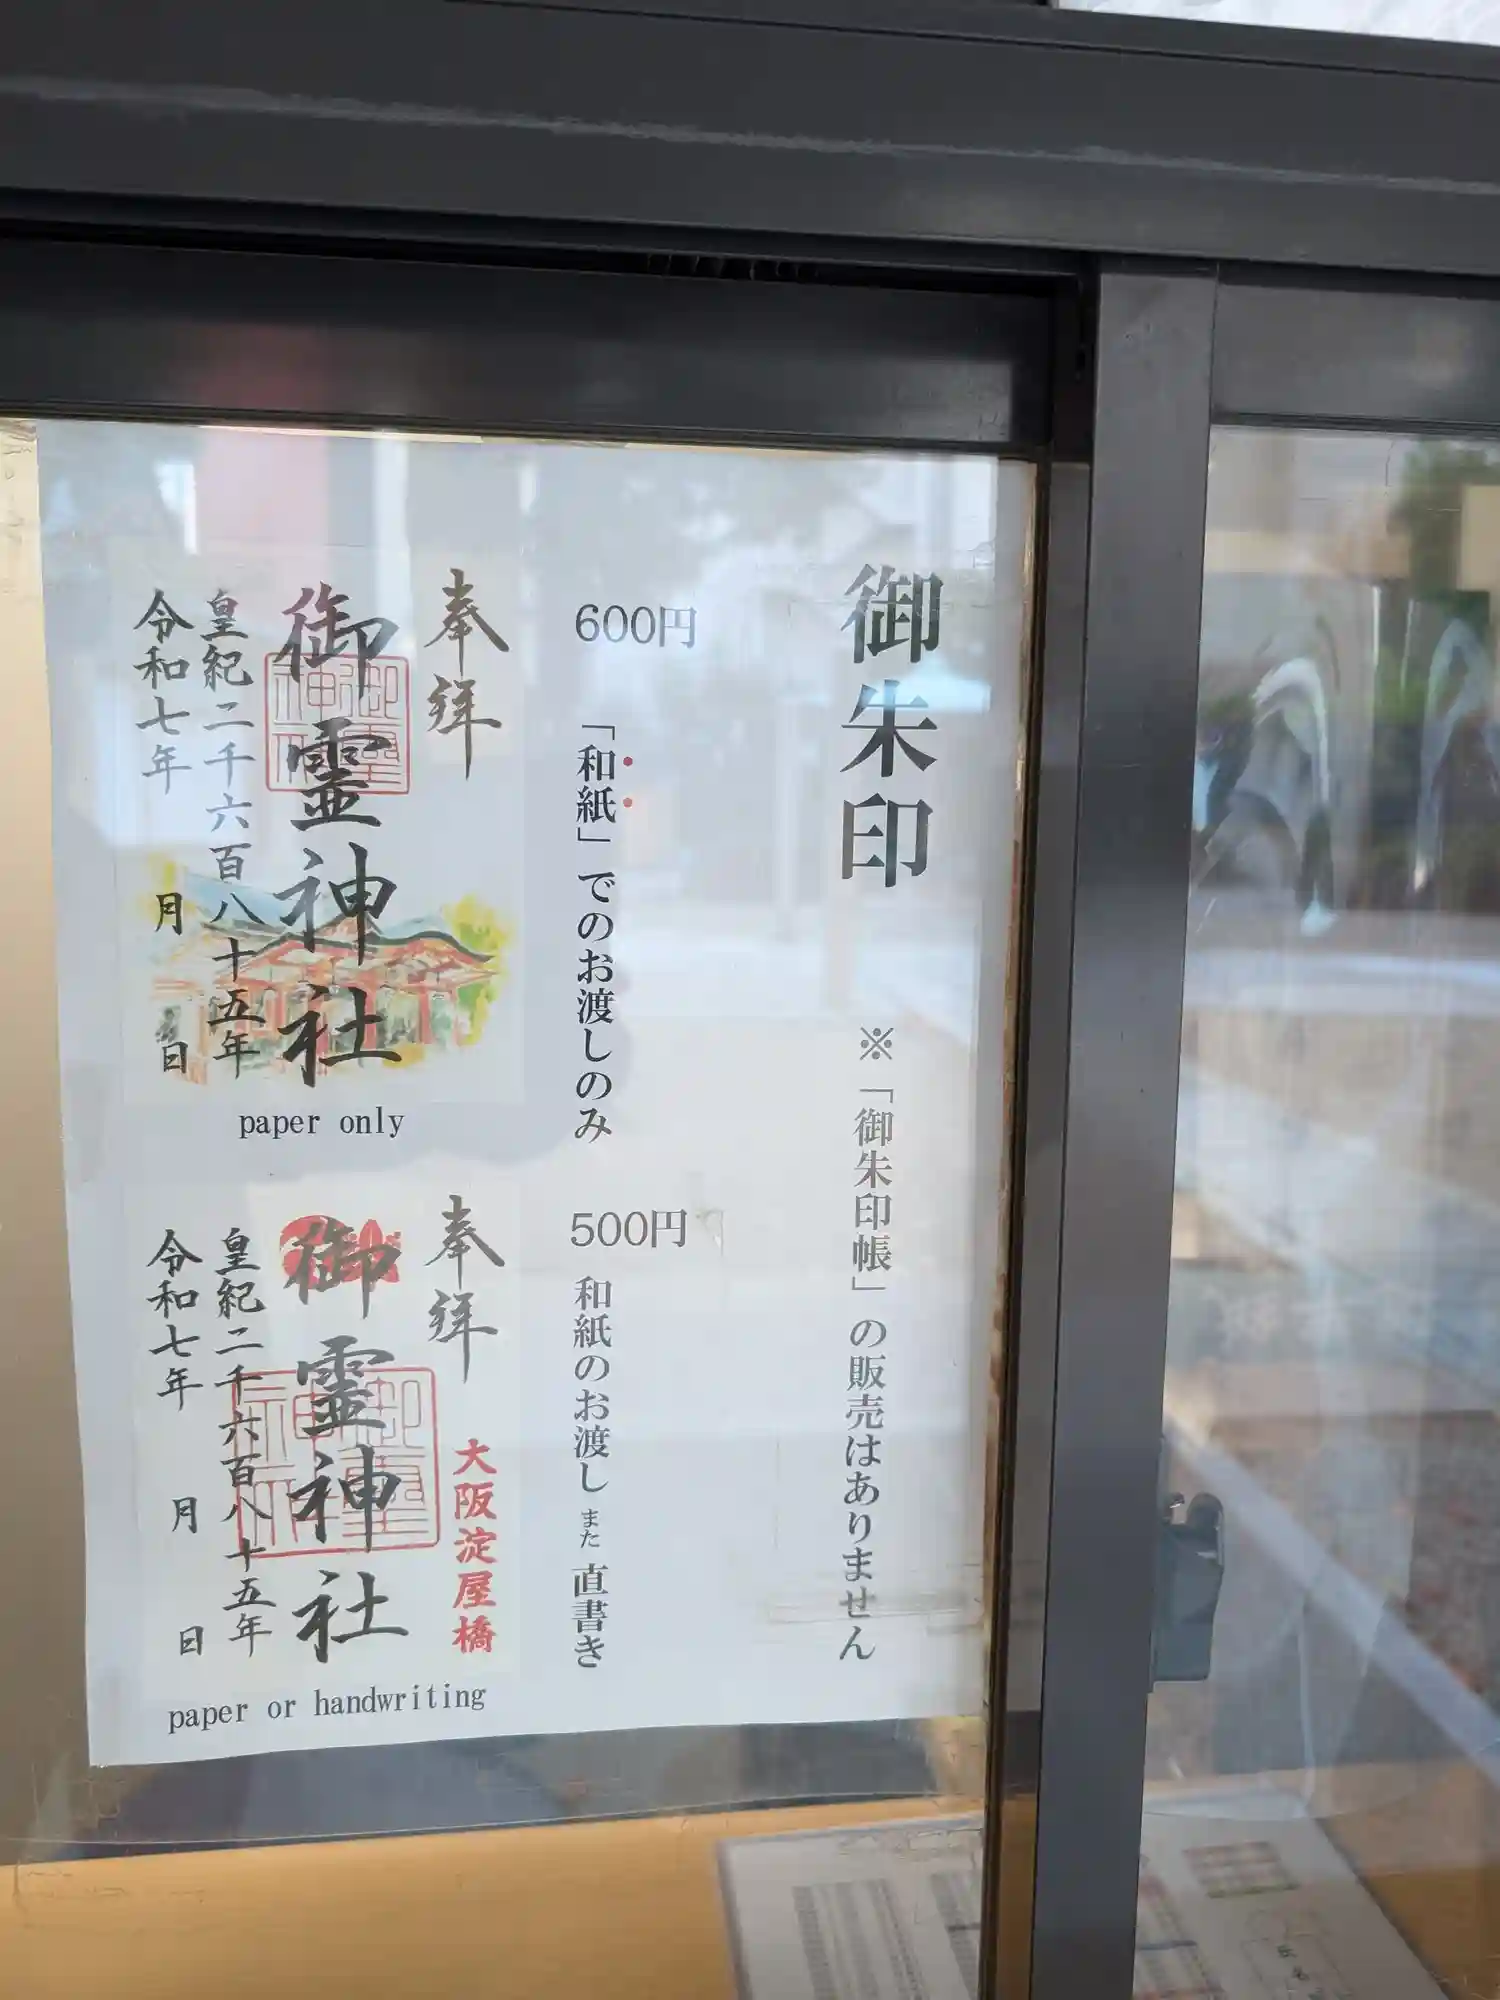 御朱印
※「御朱印帳」の販売はありません
600円
「和紙」でのお渡しのみ
奉拝
御霊神社
皇紀二千六百八十五年
令和七年 月 日
paper only
500円
和紙のお渡し また 直書き
奉拝
大阪淀屋橋
御霊神社
皇紀二千六百八十五年
令和七年 月 日
paper or handwriting
氏名